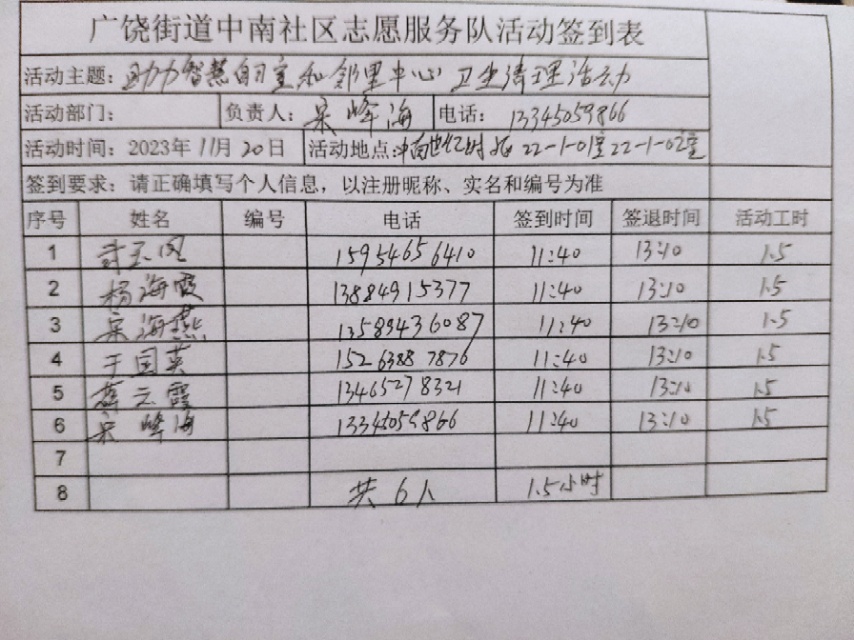 广饶街道中南社区志愿服务队活动签到表
活动主题：助力智慧自习室和邻里中心卫生清理活动
活动部门： 负责人：宋峰海 电话：13345059866
活动时间：2023年11月20日 活动地点：中南世纪 22-1-01室22-1-02室
签到要求：请正确填写个人信息，以注册昵称、实名和编号为准
序号 姓名 编号 电话 签到时间 签退时间 活动工时
1 封玉凤 15954656410 11:40 13:10 1.5
2 杨海霞 13884915377 11:40 13:10 1.5
3 宋海燕 13589436087 11:40 13:10 1.5
4 于国英 15263887876 11:40 13:10 1.5
5 蔡云霞 13465278321 11:40 13:10 1.5
6 宋峰海 13345059866 11:40 13:10 1.5
7
8 共6人 1.5小时